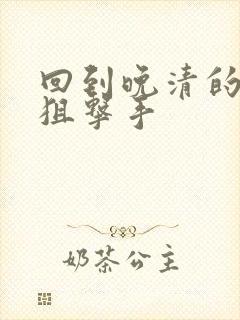 回到晚清的
狙撃手
奶茶公主